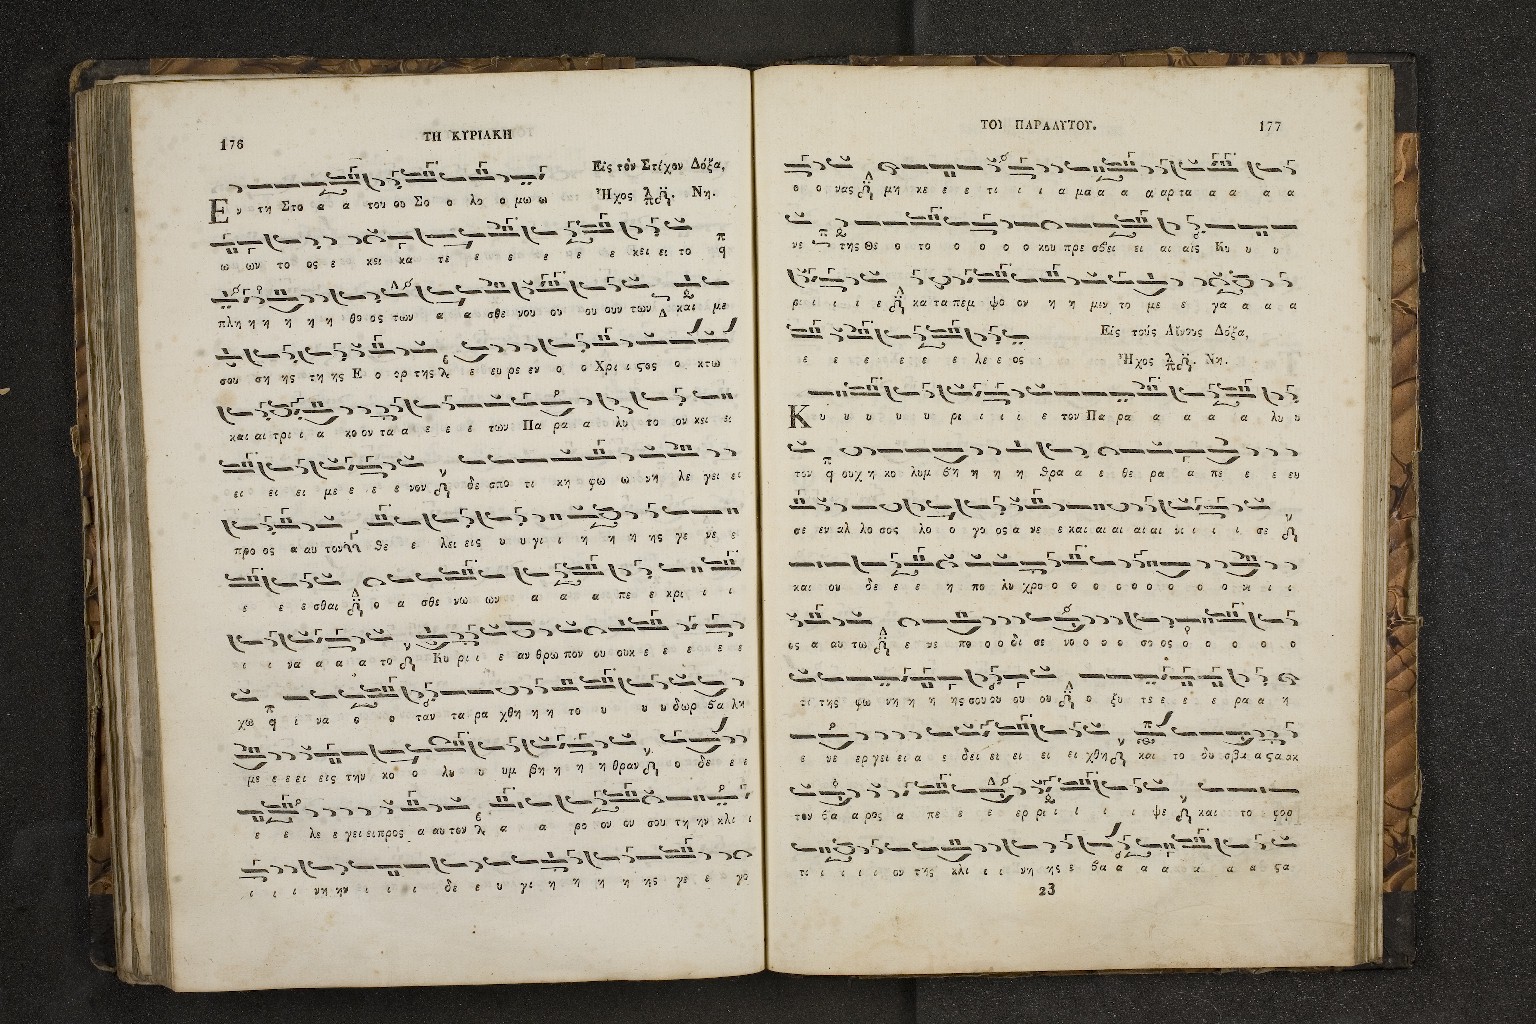 176
ΤΗ ΚΥΡΙΑΚΗ
Εἰς τὸν Στίχον Δόξα,
Ἦχος Νη.
Εν τη Στο α α του ου Σο ο λο ο μω ω
ω ων το ος ε κει κα τε ε ε ε ε ε κει ει το
πλη η η η η η θο ος των α α σθε νου ου ου ουν των και με
σου ση ης της Ε ο ορ της ε ευ ρε εν ο ο Χρι ι ςος ο κτω
και αι τρι ι α κο ον τα α ε ε ε των Πα ρα α λυ το ον κει ει
ει ει ει με ε ε ε νον δε σπο τι κη φω ω νη λε γει ει
προ ος α αυ τον θε ε λει εις υ υ γι ι η η η ης γε νε ε
ε ε ε σθαι ο α σθε νω ων α α α πε ε κρι ι ι
ι ι να α α α το Κυ ρι ι ε αν θρω πον ου ουκ ε ε ε ε ε
χω ι να ο ο ταν τα ρα χθη η η το υ υ υ δωρ βα λη
με ε ε ει εις την κο ο λυ υ υμ βη η η η θραν ο δε ε ε
ε ε λε ε γει ει προς α αυ τον α α ρο ον ου σου τη ην κλι ι
ι ι ι νη ην ι ι ι δε ε υ γι η η η η ης γε ε γο
ΤΟΥ ΠΑΡΑΛΥΤΟΥ.
177
ο ο νας μη κε ε ε τι ι ι α μα α α α αρ τα α α α α
νε της Θε ο το ο ο ο ο κου πρε σβει ει αι αις Κυ υ υ
ρι ι ι ι ε κα τα πεμ ψο ον η η μιν το με ε γα α α α
ε ε ε ε ε ε λε ε ος
Εἰς τοὺς Αἴνους Δόξα,
Ἦχος Νη.
Κυ υ υ υ υ ρι ι ι ι ε τον Πα ρα α α α α λυ υ
τον ουχ η κο λυμ βη η η η θρα α ε θε ρα α πε ε ε ευ
σε εν αλ λο σος λο ο γο ος α νε ε και αι αι αι νι ι ι ι σε
και ου δε ε ε η πο λυ χρο ο ο ο ο ο ο ο ο ο νι ι ι
ος α αυ τω ε νε πο ο ο δι σε νο ο ο ο σο ος ο ο ο ο ο
τι της φω νη η η ης σου ου ου ου ο ο ξυ τε ε ε ε ρα α η
ε νε ερ γει ει α ε δει ει ει ει ει χθη και το δυ σβα α ςα ακ
τον βα α ρος α πε ε ε ερ ρι ι ι ι ψε και το φορ
τι ι ι ι ι ον της κλι ι ι νη ης ε βα α α α α α α ςα
23